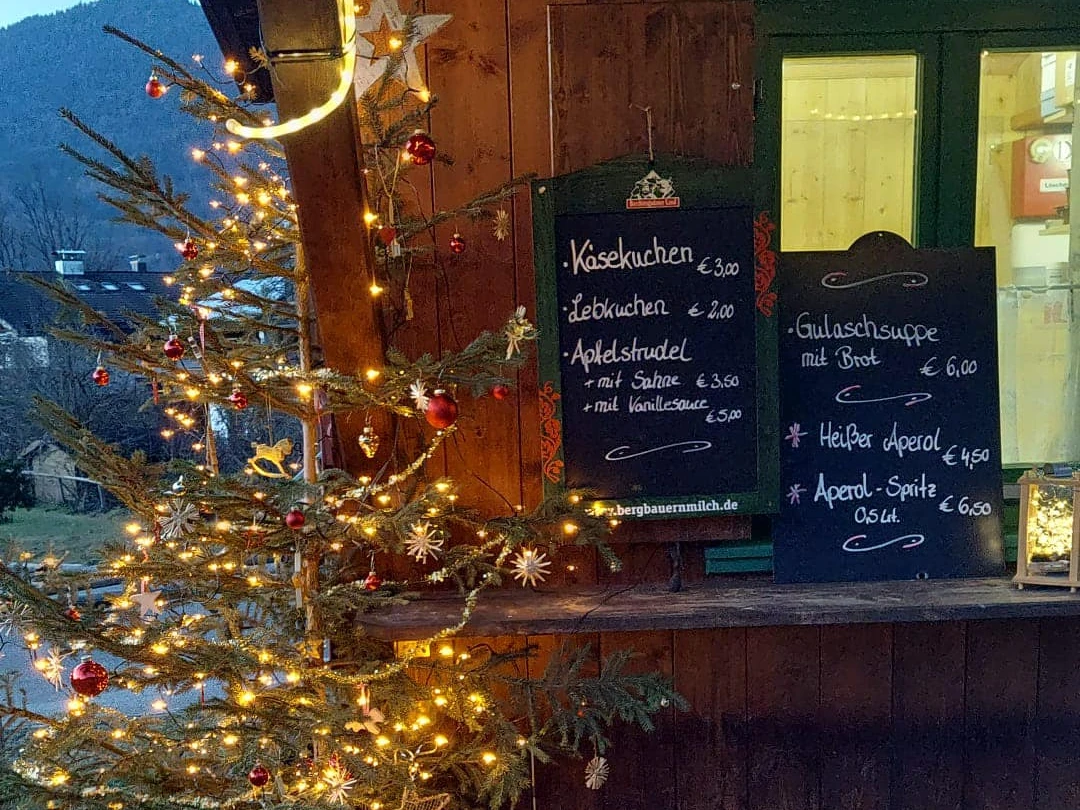 Berchtesgadener Land
·Käsekuchen € 3,00
·Lebkuchen € 2,00
·Apfelstrudel
+ mit Sahne € 3,50
+ mit Vanillesauce
€ 5,00
.bergbauernmilch.de
·Gulaschsuppe
mit Brot € 6,00
Heißer Aperol
€ 4,50
Aperol-Spritz
€ 6,50
0,5 Lit.